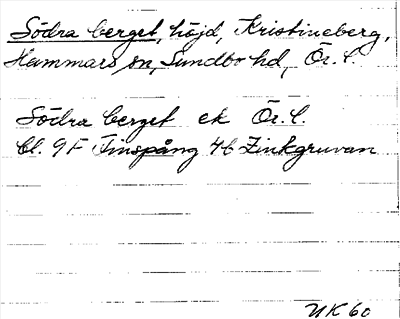 Södra berget, höjd, Kristineberg,
Hammars sn, Sundbo hd, Ör. l.
Södra berget ek Ör. l.
bl. 9F Finspång 4b Zinkgruvan
NK 60